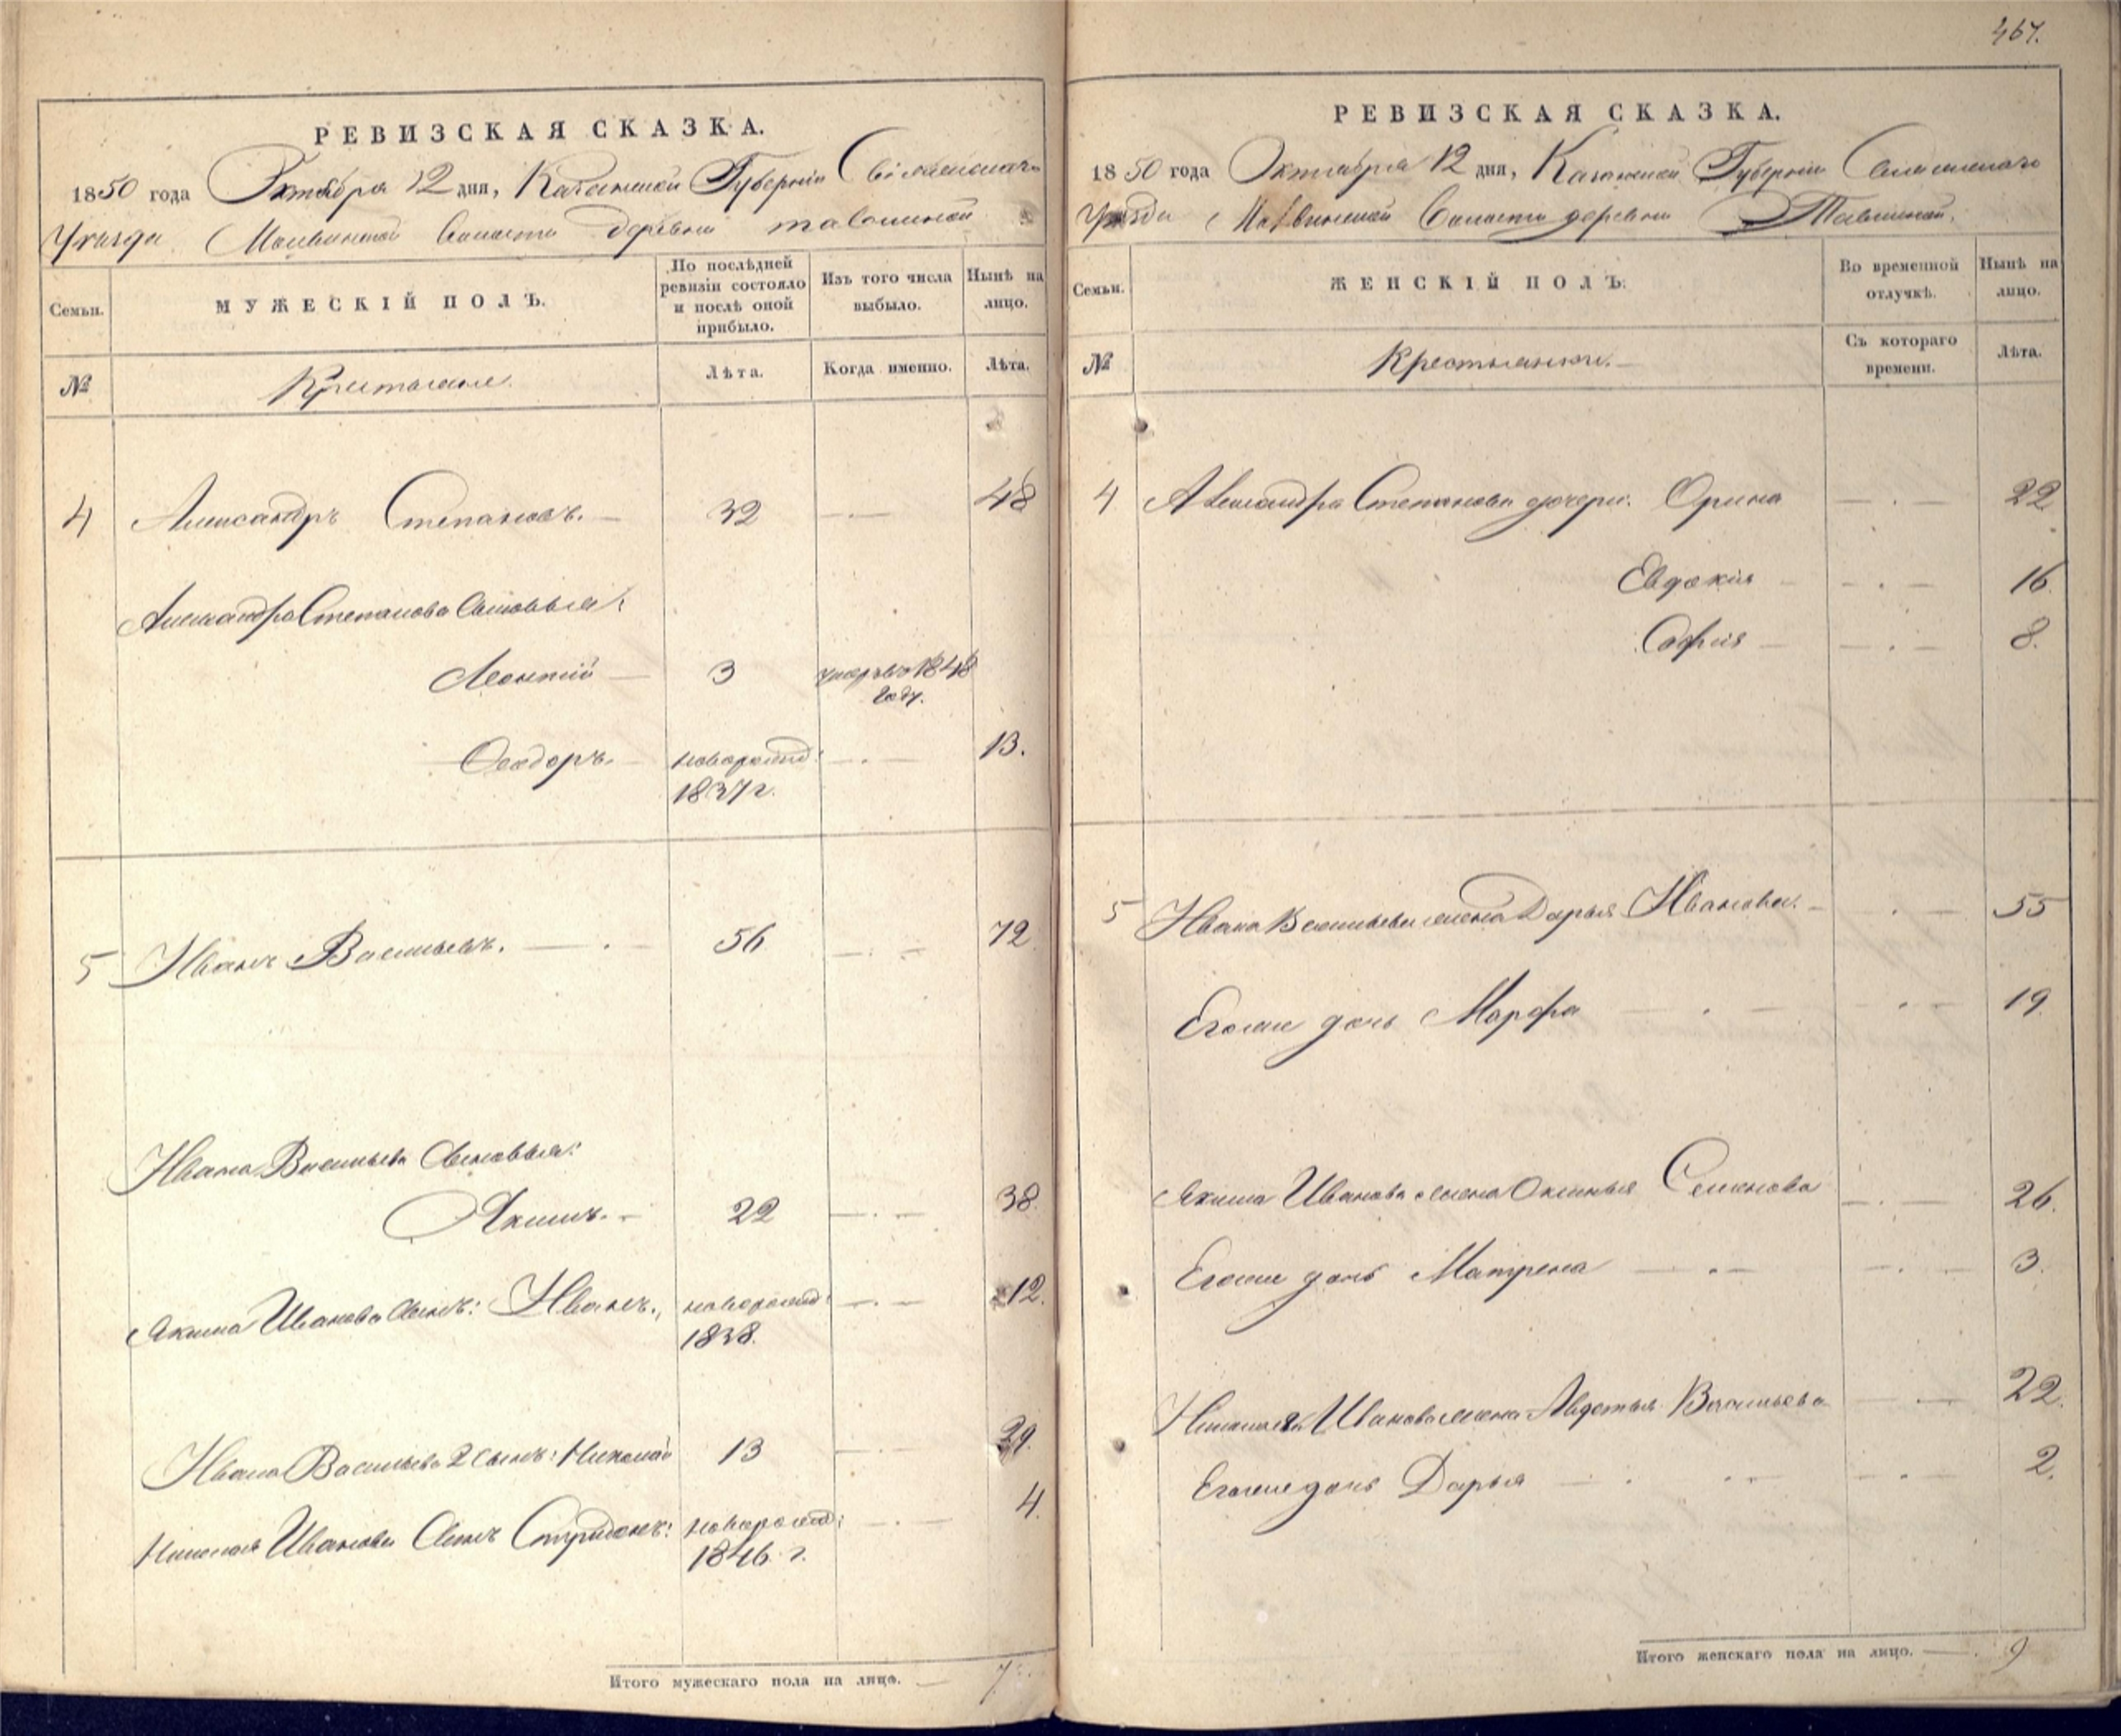 467.
РЕВИЗСКАЯ СКАЗКА.
1850 года Октября 12 дня, Казанской Губернии
Уезда Волости деревни
Семьи. МУЖЕСКІЙ ПОЛЪ. По послѣдней ревизіи состояло и послѣ оной прибыло. Изъ того числа выбыло. Нынѣ на лицо.
№ Крестьяне. Лѣта. Когда именно. Лѣта.
4 Александръ Степановъ. 32 48
Александра Степанова сыновья:
Леонтій 3 умеръ въ 1848 году.
Ѳеодоръ новорожд: 1837 г. 13.
5 Иванъ Васильевъ. 56 72
Ивана Васильева сыновья:
Якимъ. 22 38.
Якима Иванова сынъ: Иванъ. новорожд: 1838. 12.
Ивана Васильева 2 сынъ: Николай 13 29.
Николая Иванова сынъ Спридонъ: новорожд: 1846 г. 4.
Итого мужескаго пола на лицо. 7
РЕВИЗСКАЯ СКАЗКА.
1850 года Октября 12 дня, Казанской Губернии
Волости деревни
Семьи. ЖЕНСКІЙ ПОЛЪ. Во временной отлучкѣ. Нынѣ на лицо.
№ Крестьянки. Съ котораго времени. Лѣта.
4 Александра Степанова дочери: Орина 22
Евдокія 16.
Софія 8.
5 Ивана Васильева жена Дарья Иванова. 55
Его же дочь Марфа 19
Якима Иванова жена Оксинья Семенова 26.
Его же дочь Матрена 3.
Николая Иванова жена Авдотья Васильева 22.
Его же дочь Дарья 2.
Итого женскаго пола на лицо. 9